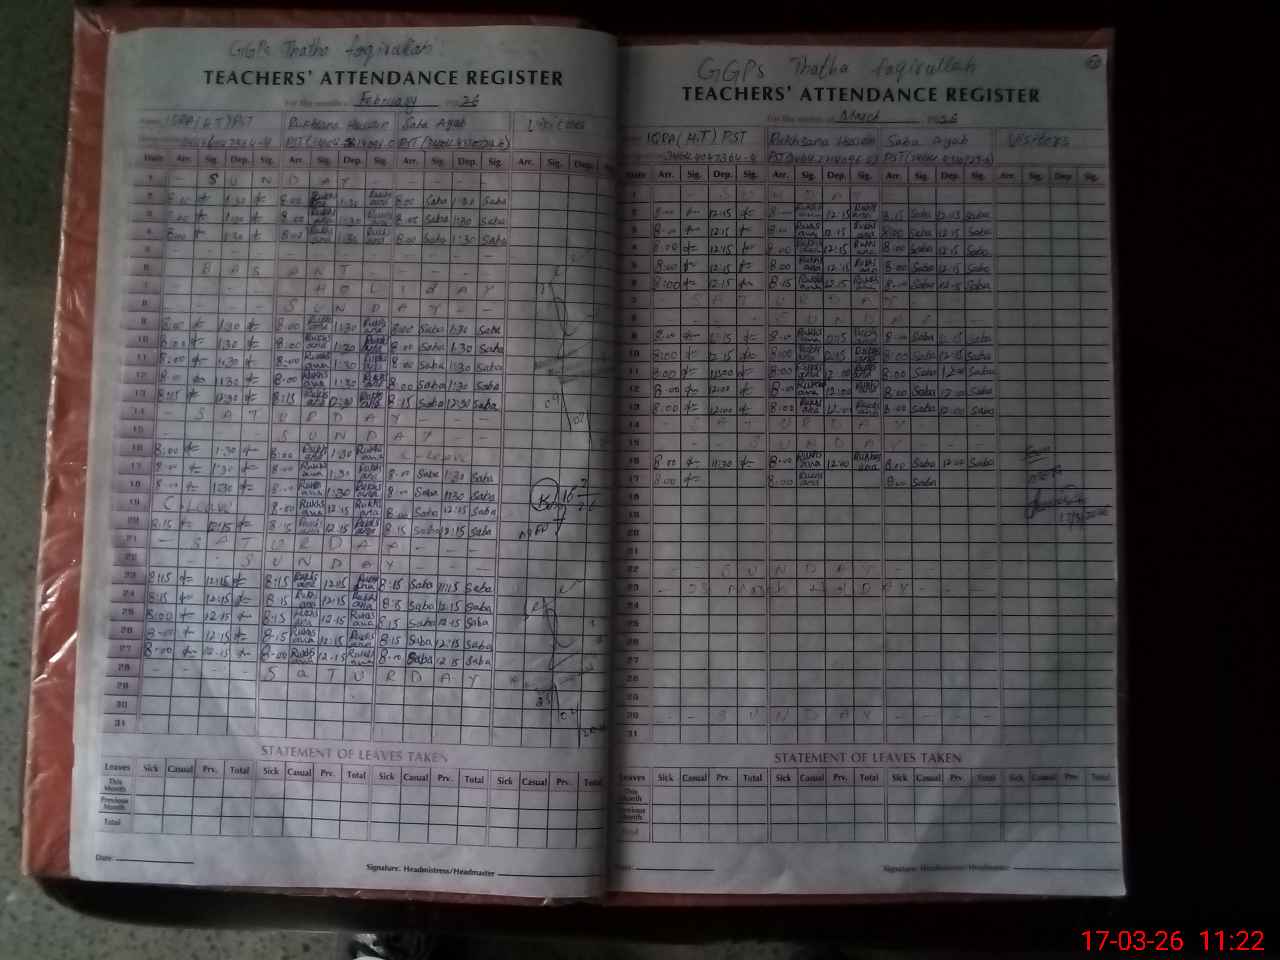 GGPS Thatha faqirullah
TEACHERS' ATTENDANCE REGISTER
For the month of February 26
IQRA (H.T) PST Rukhsana Hussain Saba Ayub Visitors
Date Arr. Sig. Dep. Sig. Arr. Sig. Dep. Sig. Arr. Sig. Dep. Sig. Arr. Sig. Dep.
1 - S U N D A Y - - - - -
2 8:00 1:30 8:00 Rukhsana 1:30 Rukhsana 8:00 Saba 1:30 Saba
3 8:00 1:30 8:00 Rukhsana 1:30 Rukhsana 8:00 Saba 1:30 Saba
4 8:00 1:30 8:00 Rukhsana 1:30 Rukhsana 8:00 Saba 1:30 Saba
5 - - - - - - - - - - - -
6 - B A S A N T - - - - -
7 - - - - - H O L I D A Y
8 - - - - S U N D A Y - -
9 8:00 1:30 8:00 Rukhsana 1:30 Rukhsana 8:00 Saba 1:30 Saba
10 8:00 1:30 8:00 Rukhsana 1:30 Rukhsana 8:00 Saba 1:30 Saba
11 8:00 1:30 8:00 Rukhsana 1:30 Rukhsana 8:00 Saba 1:30 Saba
12 8:00 1:30 8:00 Rukhsana 1:30 Rukhsana 8:00 Saba 1:30 Saba
13 8:15 12:30 8:15 Rukhsana 12:30 Rukhsana 8:15 Saba 12:30 Saba
14 - S A T U R D A Y - - -
15 - - - - S U N D A Y - -
16 8:00 1:30 8:00 Rukhsana 1:30 Rukhsana C-Leave
17 8:00 1:30 8:00 Rukhsana 1:30 Rukhsana 8:00 Saba 1:30 Saba
18 8:00 1:30 8:00 Rukhsana 1:30 Rukhsana 8:00 Saba 1:30 Saba
19 C-Leave 8:00 Rukhsana 12:15 Rukhsana 8:00 Saba 12:15 Saba
20 8:15 12:15 8:15 Rukhsana 12:15 Rukhsana 8:15 Saba 12:15 Saba
21 - S A T U R D A Y - - -
22 - - - S U N D A Y - - -
23 8:15 12:15 8:15 Rukhsana 12:15 Rukhsana 8:15 Saba 12:15 Saba
24 8:15 12:15 8:15 Rukhsana 12:15 Rukhsana 8:15 Saba 12:15 Saba
25 8:00 12:15 8:15 Rukhsana 12:15 Rukhsana 8:15 Saba 12:15 Saba
26 8:00 12:15 8:15 Rukhsana 12:15 Rukhsana 8:15 Saba 12:15 Saba
27 8:00 12:15 8:00 Rukhsana 12:15 Rukhsana 8:00 Saba 12:15 Saba
28 - - - - S A T U R D A Y
29
30
31
STATEMENT OF LEAVES TAKEN
Leaves Sick Casual Prv. Total Sick Casual Prv. Total Sick Casual Prv. Total Sick Casual Prv. Total
This Month
Previous Month
Total
Date: Signature. Headmistress/Headmaster
GGPS Thatha faqirullah
TEACHERS' ATTENDANCE REGISTER
For the month of March 26
IQRA (H.T) PST Rukhsana Hussain Saba Ayub Visitors
Date Arr. Sig. Dep. Sig. Arr. Sig. Dep. Sig. Arr. Sig. Dep. Sig. Arr. Sig. Dep. Sig.
1 - - S U N D A Y - - - -
2 8:00 12:15 8:00 Rukhsana 12:15 Rukhsana 8:15 Saba 12:15 Saba
3 8:00 12:15 8:00 Rukhsana 12:15 Rukhsana 8:00 Saba 12:15 Saba
4 8:00 12:15 8:00 Rukhsana 12:15 Rukhsana 8:00 Saba 12:15 Saba
5 8:00 12:15 8:00 Rukhsana 12:15 Rukhsana 8:00 Saba 12:15 Saba
6 8:00 12:15 8:15 Rukhsana 12:15 Rukhsana 8:00 Saba 12:15 Saba
7 - S A T U R D A Y - - -
8 - - - - S U N D A Y - -
9 8:00 12:15 8:00 Rukhsana 12:15 Rukhsana 8:00 Saba 12:15 Saba
10 8:00 12:15 8:00 Rukhsana 12:15 Rukhsana 8:00 Saba 12:15 Saba
11 8:00 12:00 8:00 Rukhsana 12:00 Rukhsana 8:00 Saba 12:00 Saba
12 8:00 12:00 8:00 Rukhsana 12:00 Rukhsana 8:00 Saba 12:00 Saba
13 8:00 12:00 8:00 Rukhsana 12:00 Rukhsana 8:00 Saba 12:00 Saba
14 - S A T U R D A Y - - -
15 - - - S U N D A Y - - -
16 8:00 11:30 8:00 Rukhsana 12:00 Rukhsana 8:00 Saba 12:00 Saba
17 8:00 8:00 Rukhsana 8:00 Saba
18
19
20
21
22 - - S U N D A Y - - - -
23 - 23 March H O L I D A Y - -
24
25
26
27
28
29 - - S U N D A Y - - - -
31
STATEMENT OF LEAVES TAKEN
Leaves Sick Casual Prv. Total Sick Casual Prv. Total Sick Casual Prv. Total Sick Casual Prv. Total
This Month
Previous Month
Total
Date: Signature. Headmistress/Headmaster
17-03-26 11:22